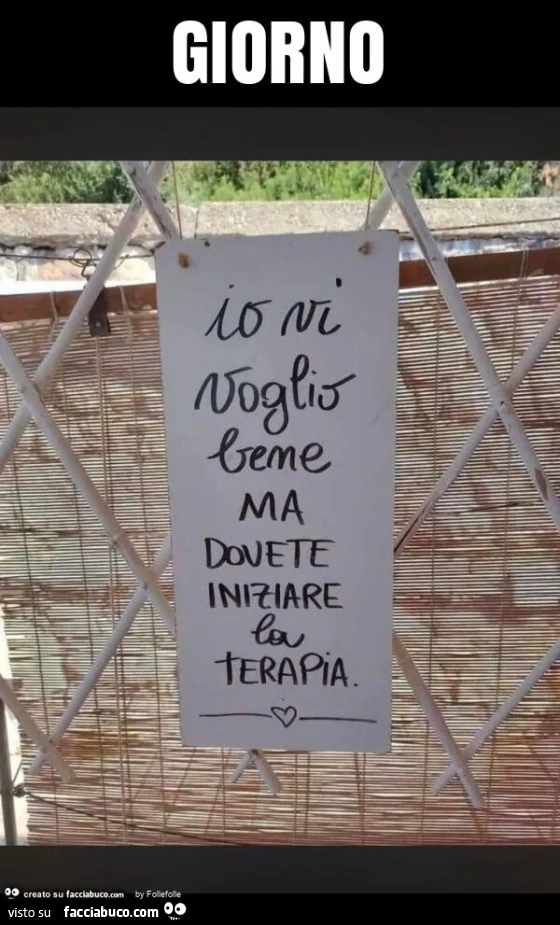 GIORNO
io vi
voglio
bene
MA
DOVETE
INIZIARE
la
TERAPIA.
creato su facciabuco.com by Follefolle
visto su facciabuco.com